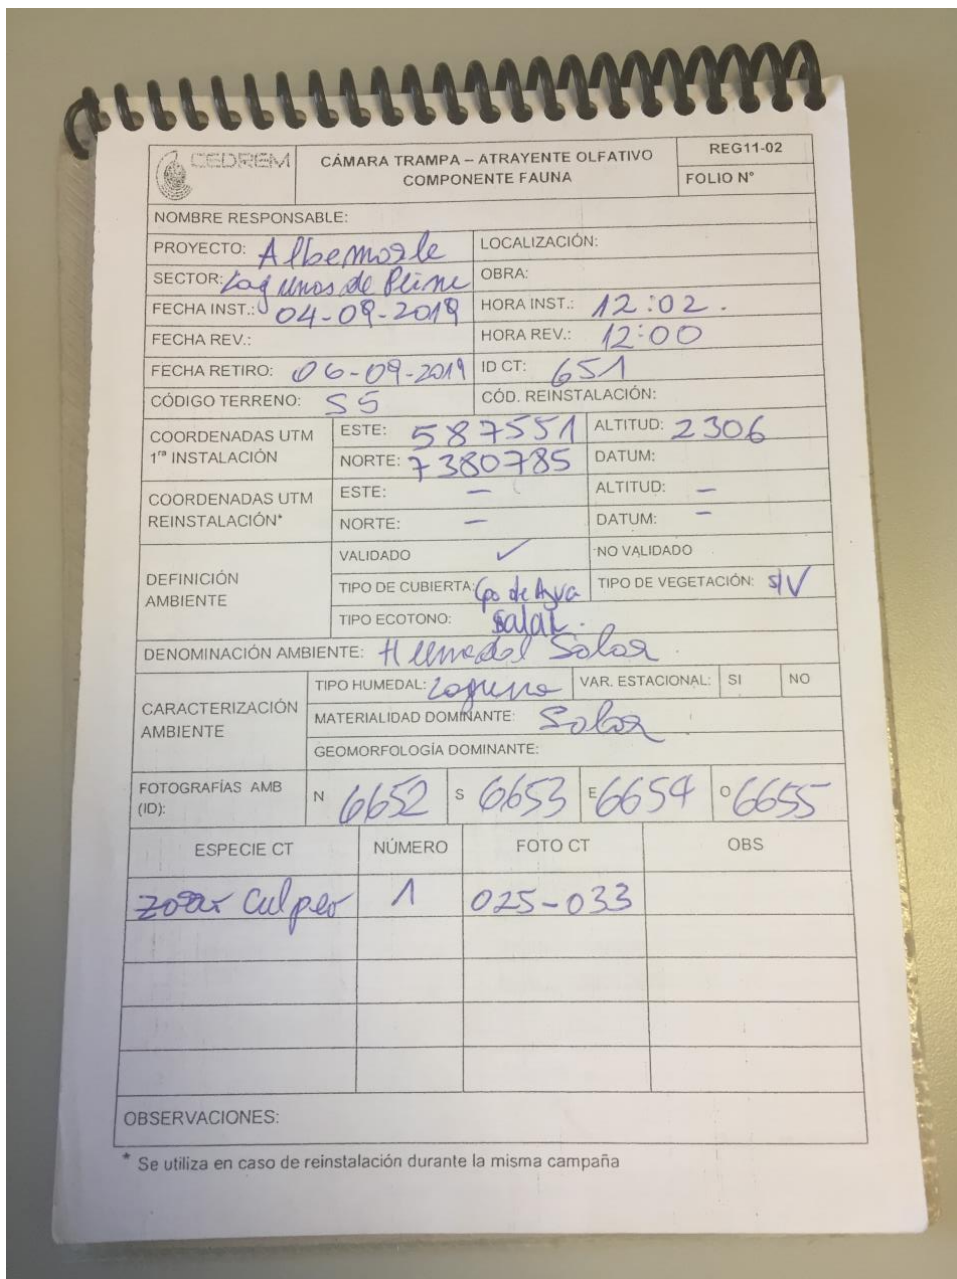 CEDREM
CÁMARA TRAMPA – ATRAYENTE OLFATIVO
COMPONENTE FAUNA
REG11-02
FOLIO N°
NOMBRE RESPONSABLE:
PROYECTO: Albemarle LOCALIZACIÓN:
SECTOR: Lagunas de Peine OBRA:
FECHA INST.: 04-09-2019 HORA INST.: 12:02.
FECHA REV.: HORA REV.: 12:00
FECHA RETIRO: 06-09-2019 ID CT: 651
CÓDIGO TERRENO: S5 CÓD. REINSTALACIÓN:
COORDENADAS UTM
1ra INSTALACIÓN
ESTE: 587551 ALTITUD: 2306
NORTE: 7380785 DATUM:
COORDENADAS UTM
REINSTALACIÓN*
ESTE: – ALTITUD: –
NORTE: – DATUM: –
DEFINICIÓN
AMBIENTE
VALIDADO ✓ NO VALIDADO
TIPO DE CUBIERTA: Cpo de Agua TIPO DE VEGETACIÓN: S/V
TIPO ECOTONO: Salar.
DENOMINACIÓN AMBIENTE: Humedal Salar
CARACTERIZACIÓN
AMBIENTE
TIPO HUMEDAL: Laguna VAR. ESTACIONAL: SI NO
MATERIALIDAD DOMINANTE: Salar
GEOMORFOLOGÍA DOMINANTE:
FOTOGRAFÍAS AMB
(ID):
N 6652 S 6653 E 6654 O 6655
ESPECIE CT NÚMERO FOTO CT OBS
Culpeo 1 025-033
OBSERVACIONES:
* Se utiliza en caso de reinstalación durante la misma campaña